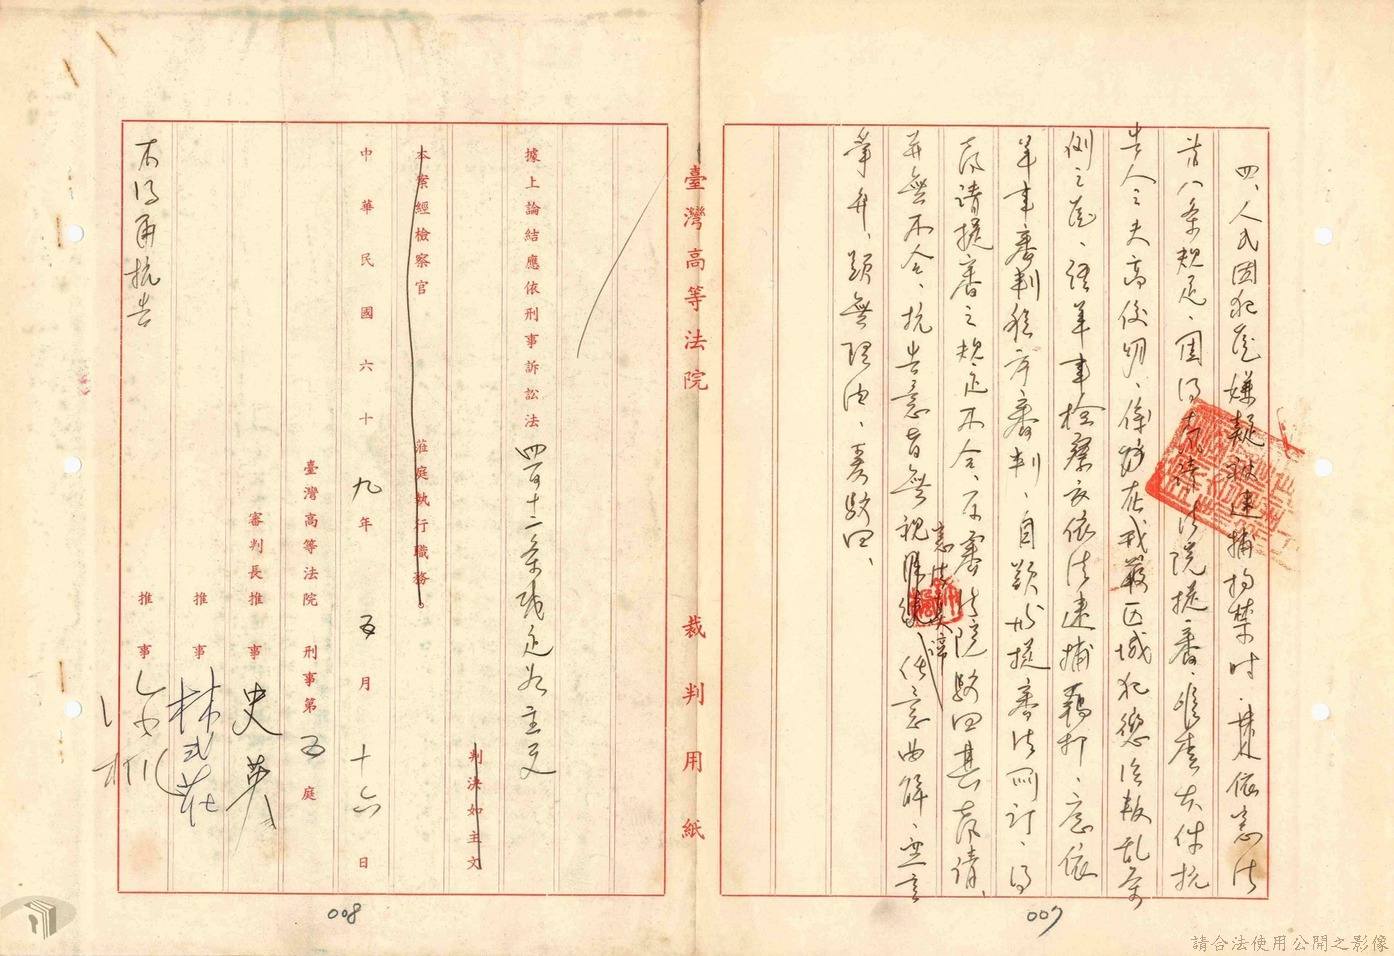 四、人民因犯罪嫌疑被逮捕拘禁時、其依憲法
第八條規定、固得聲請法院提審、惟查本件抗
告人之夫高俊明、係在戒嚴区域犯懲治叛乱条
例之罪、經軍事檢察官依法逮捕羈押、應依
軍事審判程序審判、自顯與提審法所訂、得
聲請提審之規定不合、原審法院駁回其聲請、
並無不合、抗告意旨無視憲法真諦任意曲解、空言
爭弁、顯無理由、應駁回、
臺灣高等法院 裁判用紙
據上論結應依刑事訴訟法四百十二条裁定如主文
判決如主文
本案經檢察官 蒞庭執行職務。
中華民國六十九年五月十六日
臺灣高等法院刑事第五庭
審判長推事 史英
推事 林式莊
推事
不得再抗告
007
008
請合法使用公開之影像